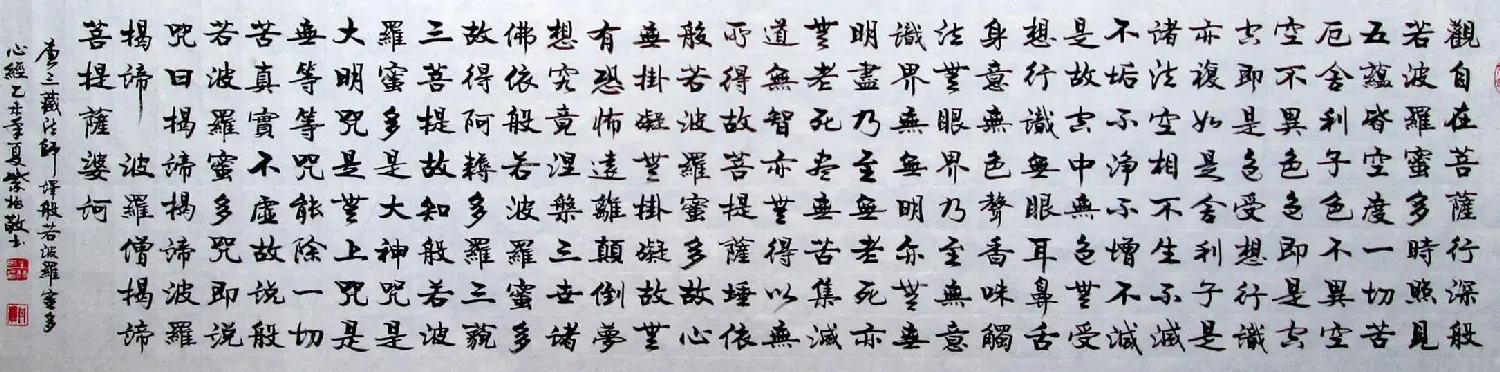 觀自在菩薩行深般
若波羅蜜多時照見
五蘊皆空度一切苦
厄舍利子色不異空
空不異色色即是空
空即是色受想行識
亦複如是舍利子是
諸法空相不生不滅
不垢不淨不增不減
是故空中無色無受
想行識無眼耳鼻舌
身意無色聲香味觸
法無眼界乃至無意
識界無無明亦無無
明盡乃至無老死亦
無老死盡無苦集滅
道無智亦無得以無
所得故菩提薩埵依
般若波羅蜜多故心
無掛凝無掛凝故無
有恐怖遠離顛倒夢
想究竟涅槃三世諸
佛依般若波羅蜜多
故得阿耨多羅三藐
三菩提故知般若波
羅蜜多是大神咒是
大明咒是無上咒是
無等等咒能除一切
苦真實不虛故說般
若波羅蜜多咒即說
咒曰揭諦揭諦波羅
揭諦 波羅僧揭諦
菩提薩婆訶
唐三藏法師譯般若波羅蜜多
心經乙未年夏紫柏敬書